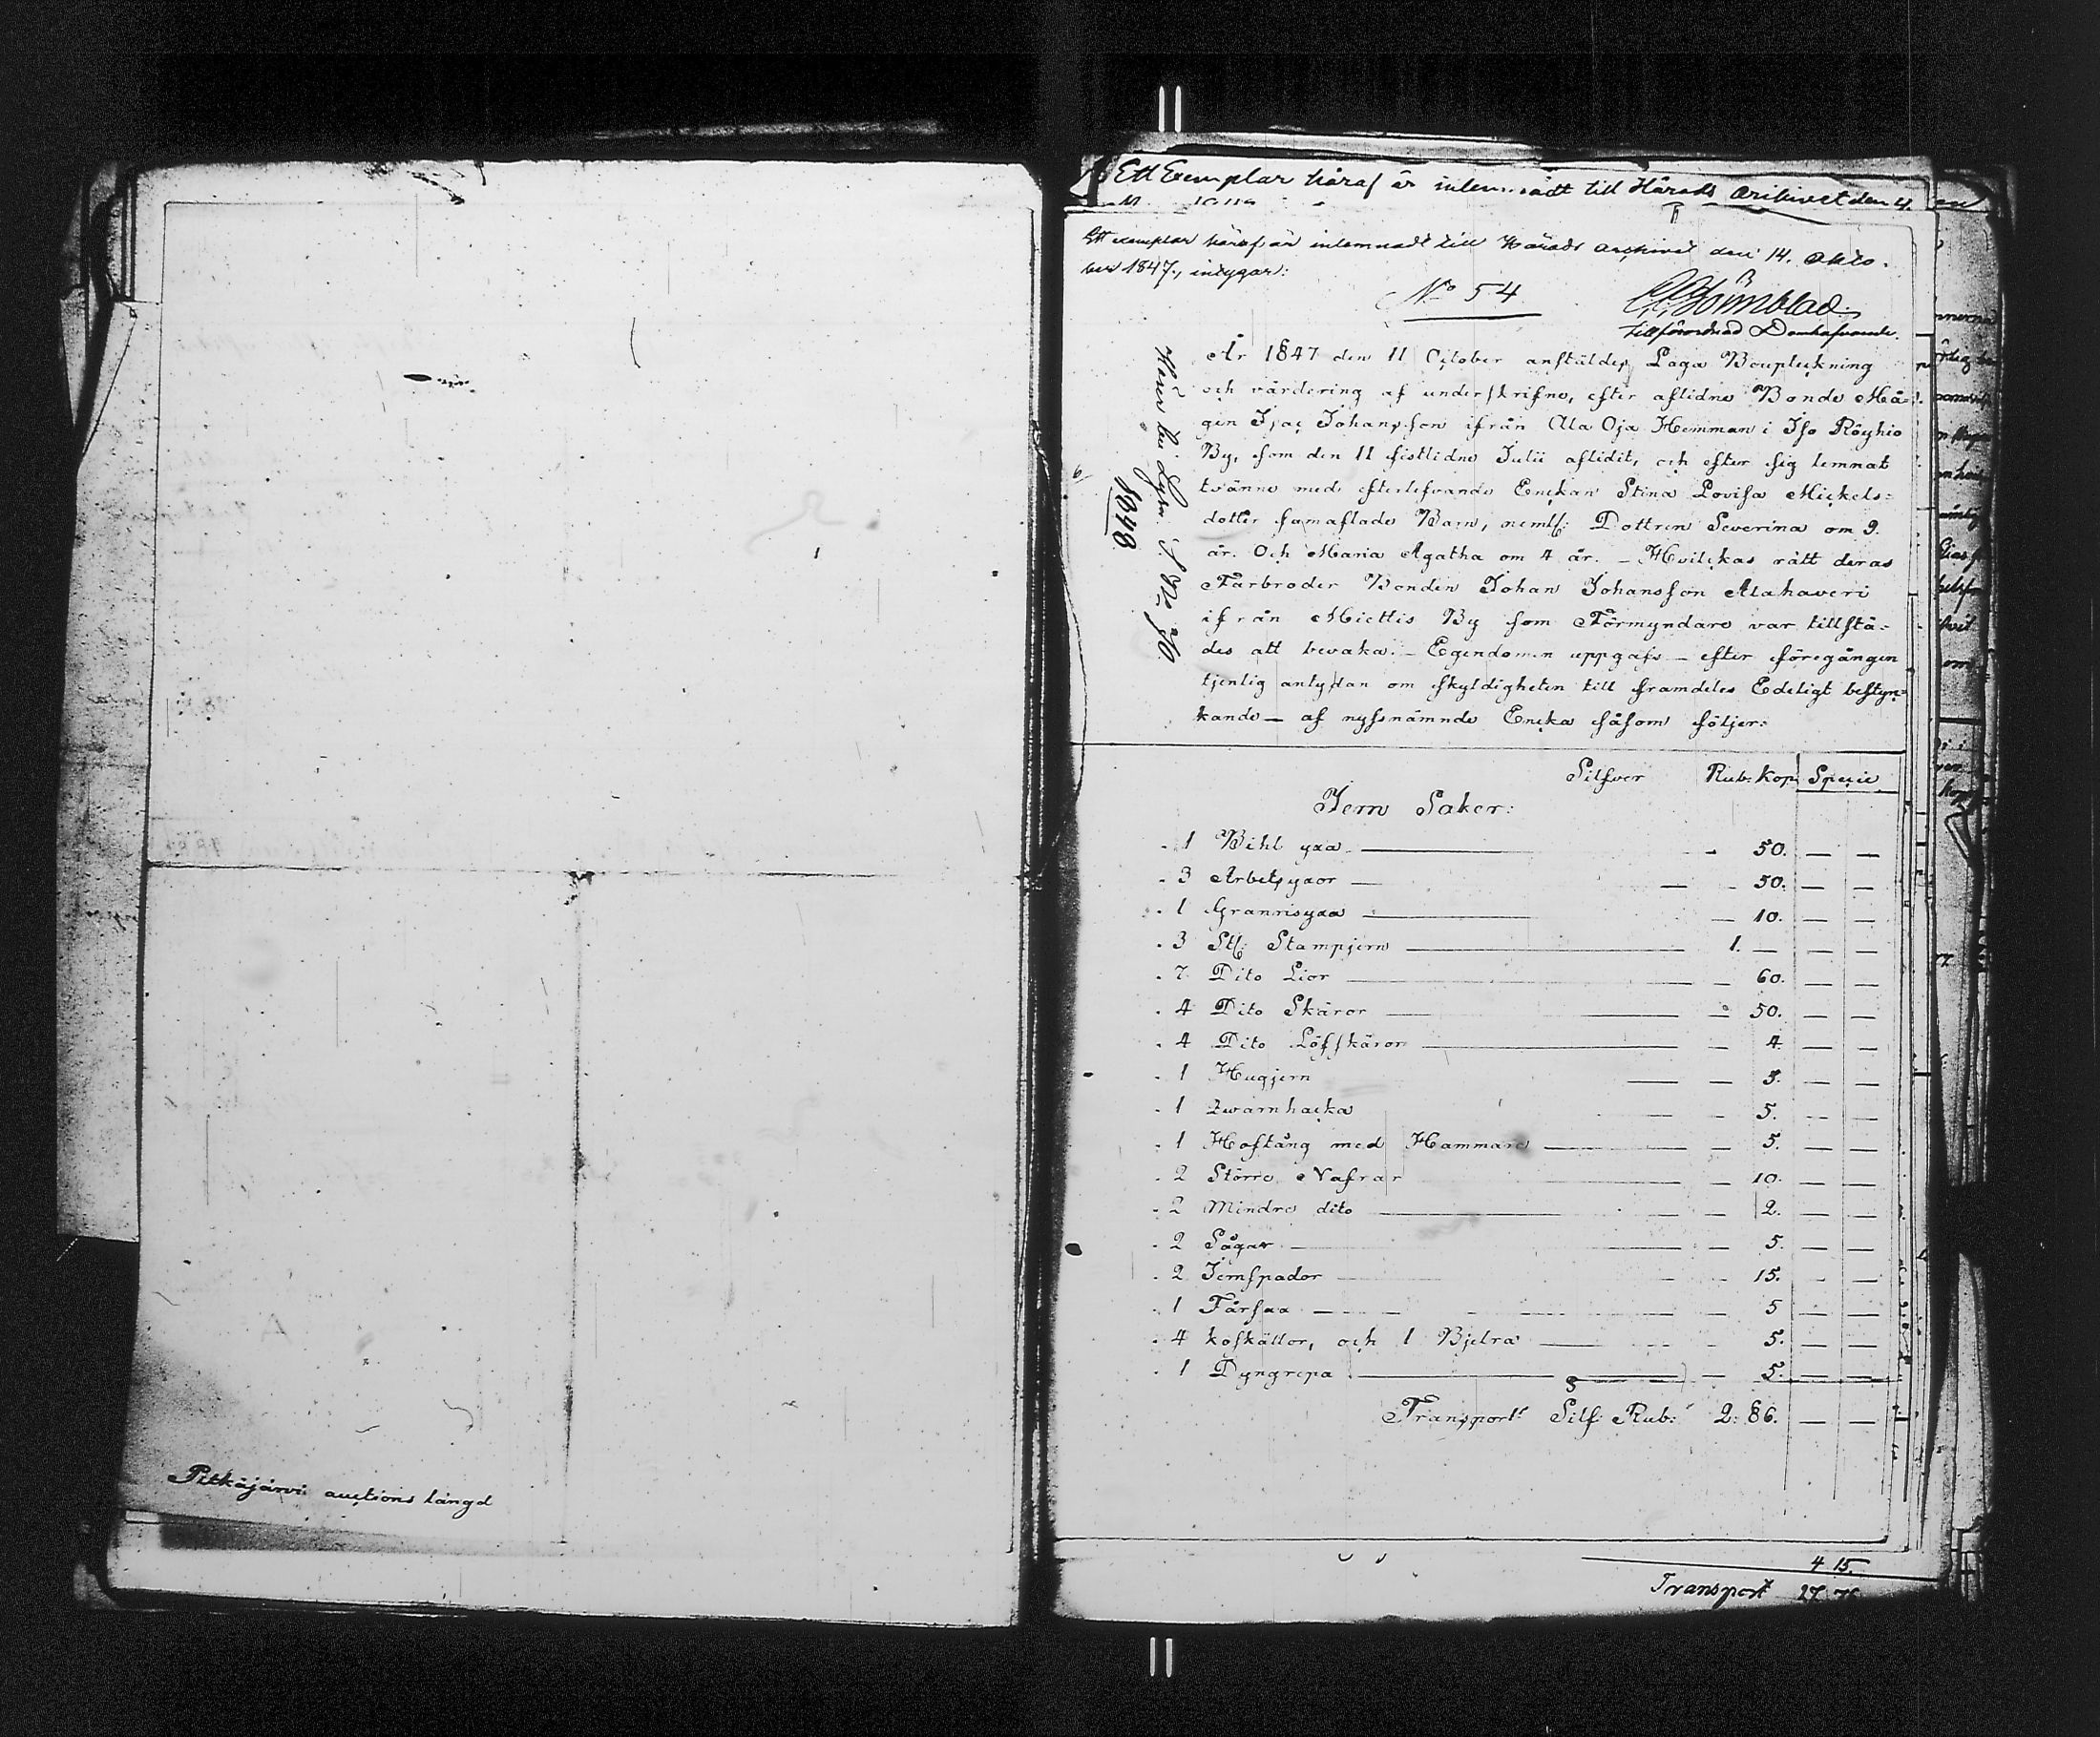 Pitkäjärvi auctions längd
Ett Exemplar häraf är inlemnadt till Härads Arkivet den 4.
Ett exemplar häraf är inlemnadt till Härads Archivet den 14. Octo-
ber 1847., intygar:
No 54
Tillförordnad Domhafvande.
1848
År 1847 den 11 October anstäldes Laga Bouptekning
och värdering af underskrifne, efter aflidne Bonde Må-
gen Isac Johansson ifrån Ala Oja Hemman i Iso Röyhio
By, som den 11 sistlidne Julii aflidit, och efter sig lemnat
tvänne med efterlefvande Enckan Stina Lovisa Mickels-
dotter samaflade Barn, neml: Dottren Severina om 9.
år. Och Maria Agatha om 4 år. – Hvilckas rätt deras
Farbroder Bonden Johan Johansson Alahaveri
ifrån Miettis By som Förmyndare var tillstä-
des att bevaka. – Egendomen uppgafs – efter föregången
tjenlig antydan om skyldigheten till framdeles Edeligt bestyr-
kande – af nyssnämnde Encka såsom följer:
Silfver Rub. Kop. Specie
Jern Saker:
1 Bihl yxa — 50. — —
3 Arbetsyxor — 50. — —
1 Granrisyxa — 10. — —
3 St: Stampjern — 1. — — —
7 Dito Lior — 60. — —
4 Dito Skäror — 50. — —
4 Dito Löfskäror — 4. — —
1 Hugjern — 5. — —
1 Qwarnhacka — 5. — —
1 Hoftång med Hammare — 5. — —
2 Större Nafrar — 10. — —
2 Mindre dito — 2. — —
2 Sågar — 5. — —
2 Jernspador — 15. — —
1 Fårsax — 5 — —
4 koskällor, och 1 Bjelra — 5. — —
1 Dyngrepa — 5. — —
Transport Silf: Rub: 2: 86. — —
4 15.
Transport 27